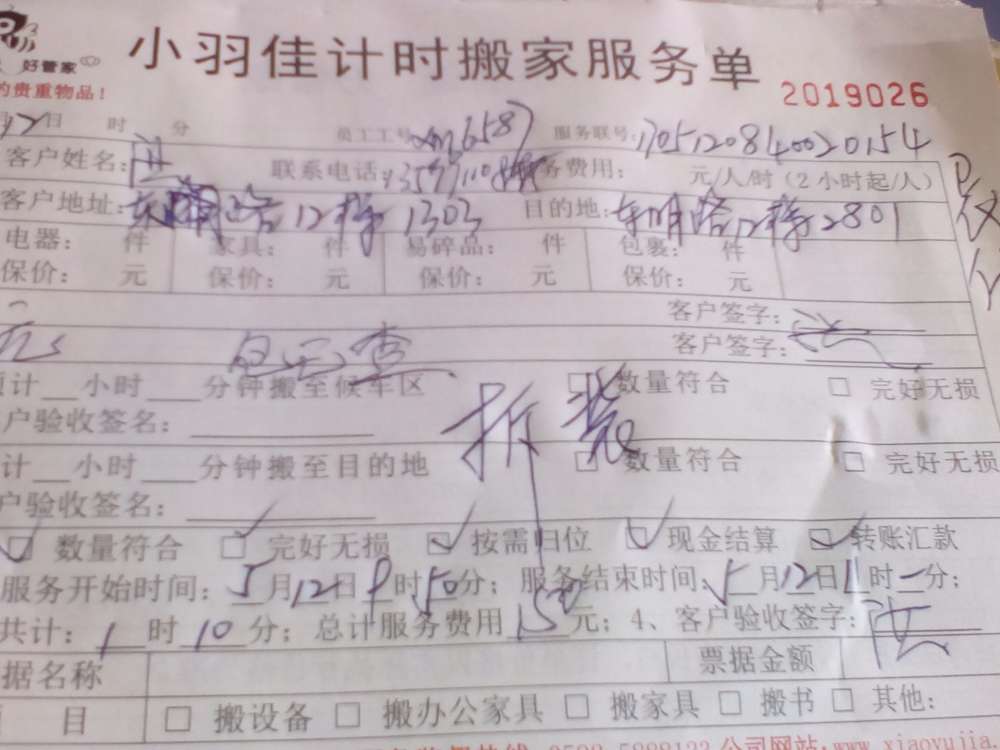 好管家
小羽佳计时搬家服务单
的贵重物品!
2019026
12日 时 分 员工工号 服务联号:
客户姓名: 联系电话: 务费用: 元/人/时（2小时起/人）
客户地址: 东明路12栋1303 目的地: 东明路12栋2801
电器: 件 家具: 件 易碎品: 件 包裹: 件
保价: 元 保价: 元 保价: 元 保价: 元
客户签字:
客户签字:
计 小时 分钟搬至候车区 数量符合 □ 完好无损
户验收签名:
拆装
计 小时 分钟搬至目的地 □ 数量符合 □ 完好无损
户验收签名:
数量符合 完好无损 按需归位 现金结算 转账汇款
服务开始时间: 5月12日9时50分; 服务结束时间: 5月12日11时一分;
共计: 1时10分; 总计服务费用150元; 4、客户验收签字:
据名称 票据金额
目 □ 搬设备 □ 搬办公家具 □ 搬家具 □ 搬书 □ 其他:
公司网站:www.xiaoyujia